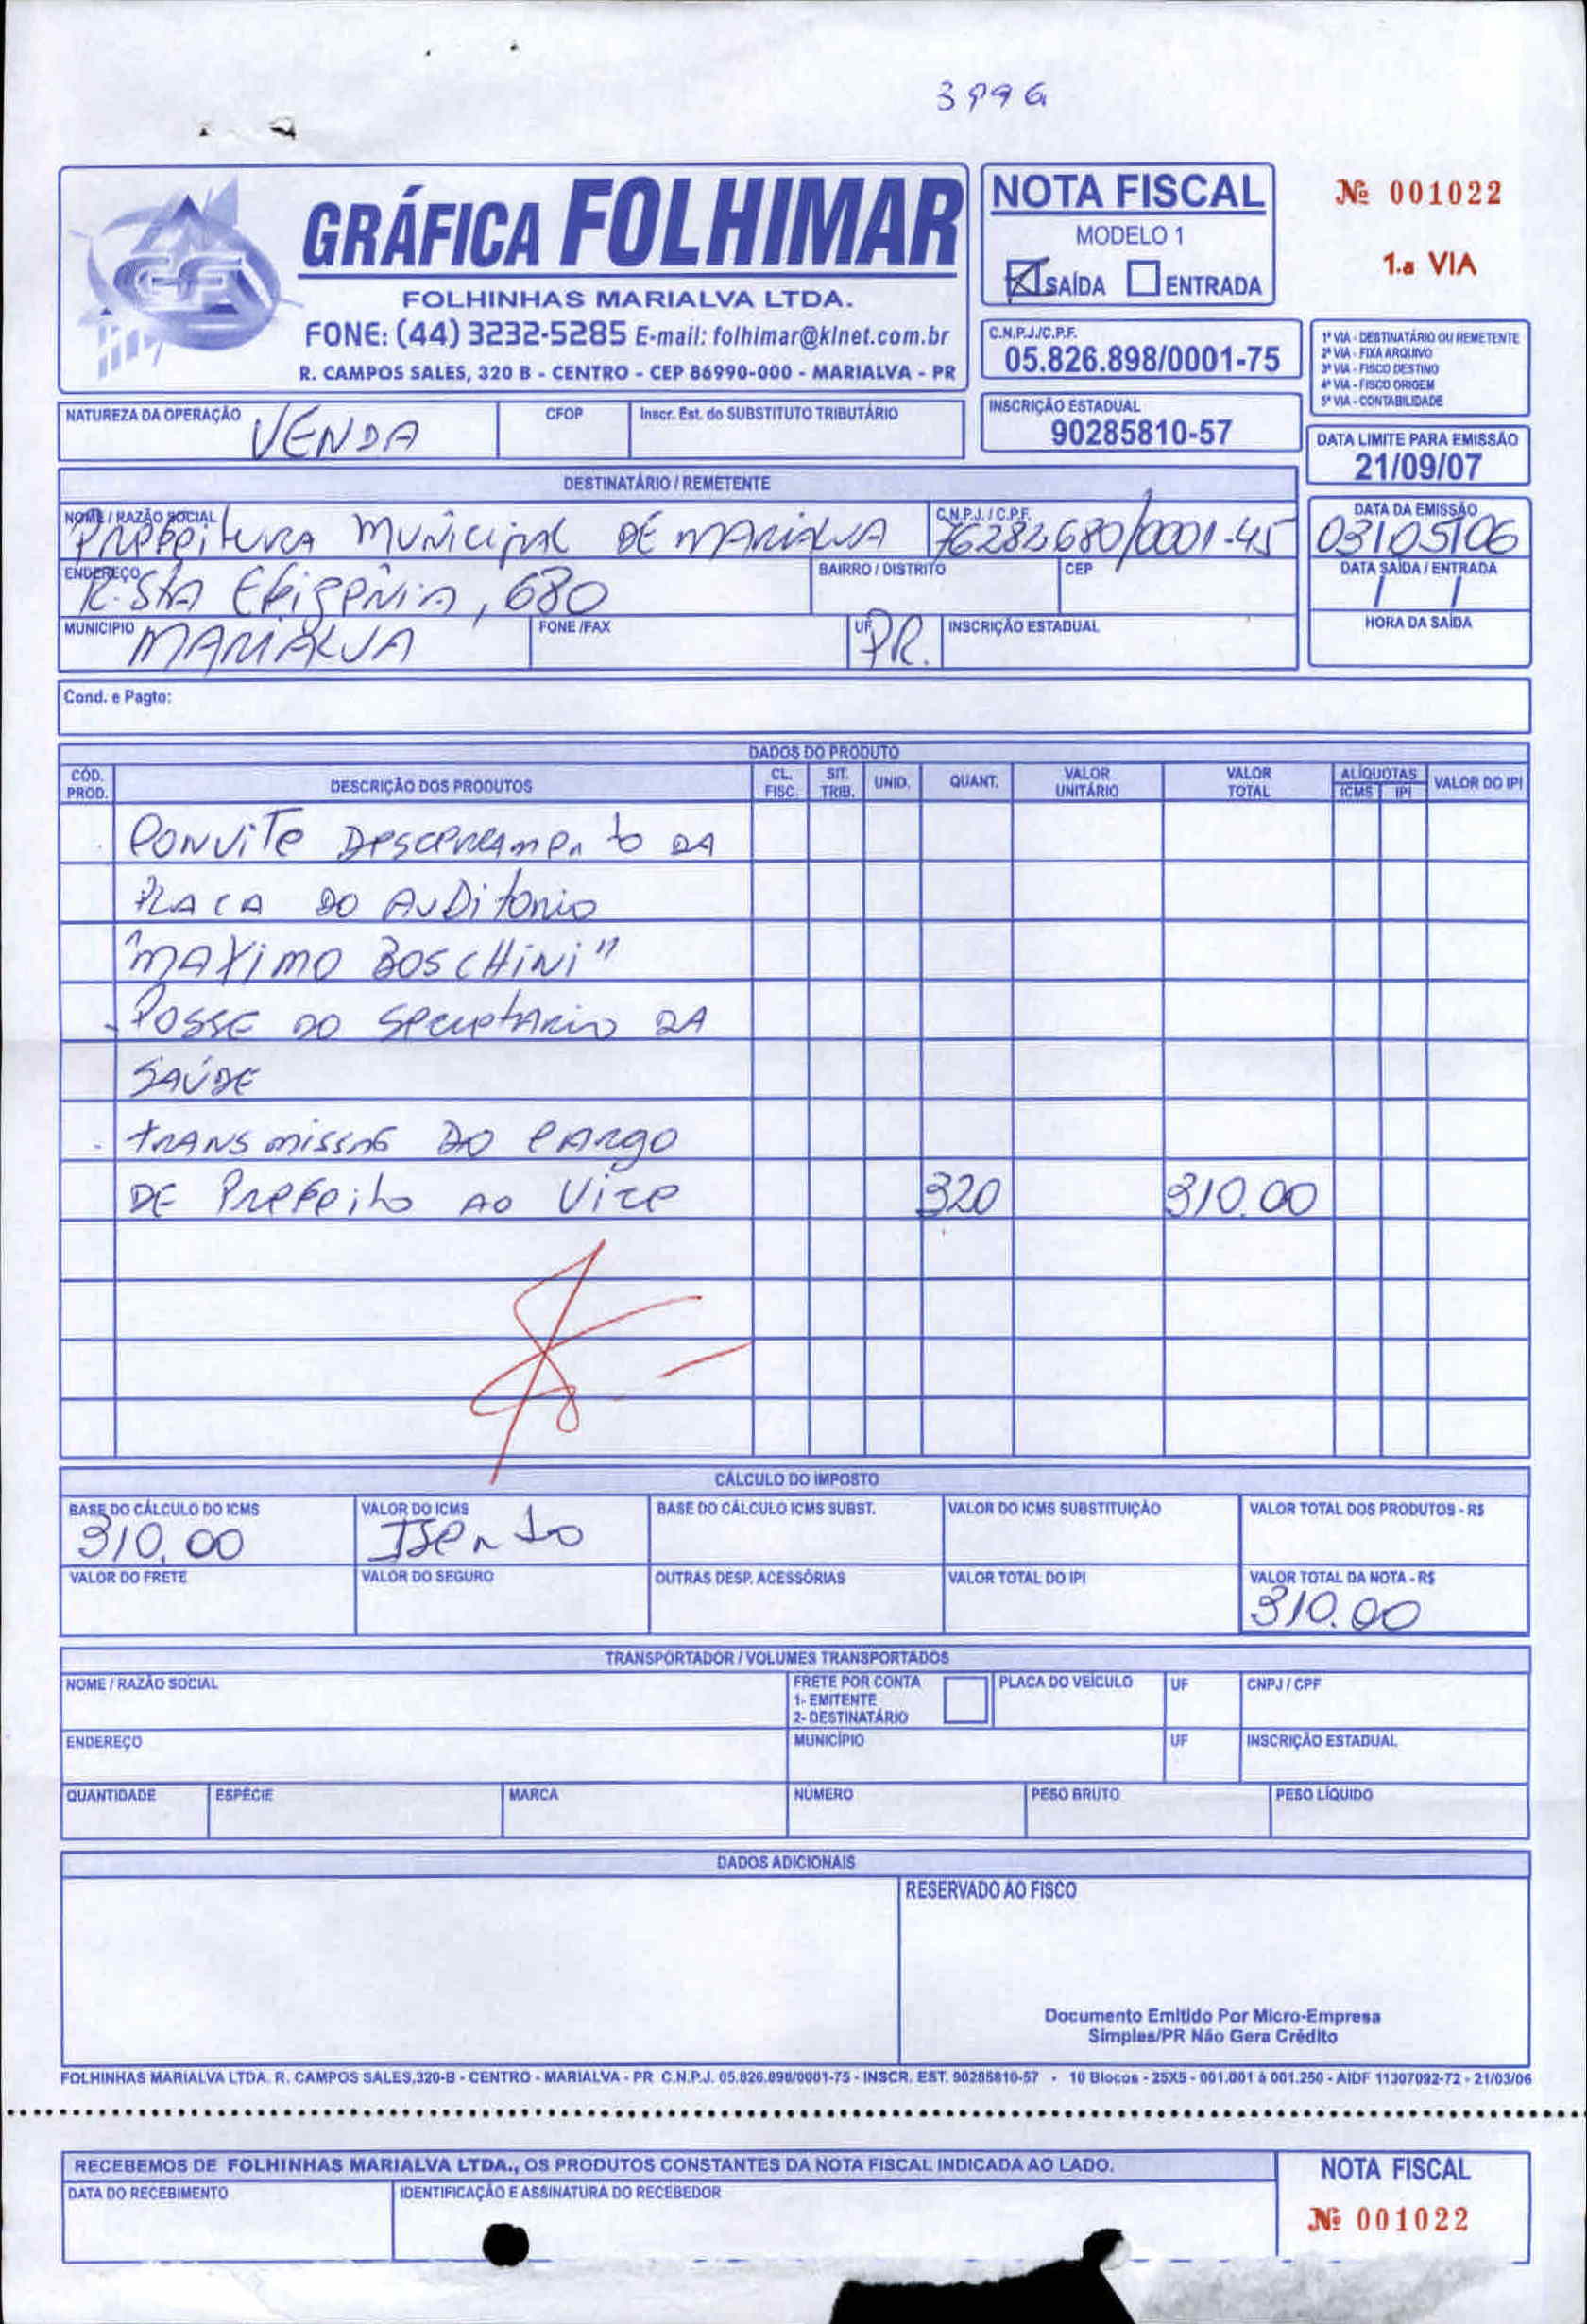 3996
GRÁFICA FOLHIMAR
FOLHINHAS MARIALVA LTDA.
FONE: (44) 3232-5285 E-mail: folhimar@klnet.com.br
R. CAMPOS SALES, 320 B - CENTRO - CEP 86990-000 - MARIALVA - PR
NOTA FISCAL
MODELO 1
SAÍDA ENTRADA
Nº 001022
1.a VIA
C.N.P.J./C.P.F.
05.826.898/0001-75
1ª VIA - DESTINATÁRIO OU REMETENTE
2ª VIA - FIXA ARQUIVO
3ª VIA - FISCO DESTINO
4ª VIA - FISCO ORIGEM
5ª VIA - CONTABILIDADE
NATUREZA DA OPERAÇÃO
VENDA
CFOP
Inscr. Est. do SUBSTITUTO TRIBUTÁRIO
INSCRIÇÃO ESTADUAL
90285810-57
DATA LIMITE PARA EMISSÃO
21/09/07
DESTINATÁRIO / REMETENTE
NOME / RAZÃO SOCIAL
Prefeitura Municipal DE MARIALVA
C.N.P.J. / C.P.F.
76282680/0001-45
DATA DA EMISSÃO
03/05/06
ENDEREÇO
R. Sta Efigenia, 680
BAIRRO / DISTRITO
CEP
DATA SAÍDA / ENTRADA
/ /
MUNICIPIO
MARIALVA
FONE /FAX
UF
PR.
INSCRIÇÃO ESTADUAL
HORA DA SAÍDA
Cond. e Pagto:
DADOS DO PRODUTO
CÓD. PROD.
DESCRIÇÃO DOS PRODUTOS
CL. FISC.
SIT. TRIB.
UNID.
QUANT.
VALOR UNITÁRIO
VALOR TOTAL
ALÍQUOTAS
ICMS IPI
VALOR DO IPI
Convite Descerramento DA
PLACA DO AUDitorio
"MAXimo BOSCHiNi"
- Posse do Secretario DA
SAÚDE
- transmissão DO cargo
DE Prefeito AO Vice 320 310.00
CÁLCULO DO IMPOSTO
BASE DO CÁLCULO DO ICMS
310.00
VALOR DO ICMS
Isento
BASE DO CÁLCULO ICMS SUBST.
VALOR DO ICMS SUBSTITUIÇÃO
VALOR TOTAL DOS PRODUTOS - R$
VALOR DO FRETE
VALOR DO SEGURO
OUTRAS DESP. ACESSÓRIAS
VALOR TOTAL DO IPI
VALOR TOTAL DA NOTA - R$
310.00
TRANSPORTADOR / VOLUMES TRANSPORTADOS
NOME / RAZÃO SOCIAL
FRETE POR CONTA
1- EMITENTE
2- DESTINATÁRIO
PLACA DO VEÍCULO
UF
CNPJ / CPF
ENDEREÇO
MUNICÍPIO
UF
INSCRIÇÃO ESTADUAL
QUANTIDADE
ESPÉCIE
MARCA
NÚMERO
PESO BRUTO
PESO LÍQUIDO
DADOS ADICIONAIS
RESERVADO AO FISCO
Documento Emitido Por Micro-Empresa
Simples/PR Não Gera Crédito
FOLHINHAS MARIALVA LTDA. R. CAMPOS SALES,320-B - CENTRO - MARIALVA - PR C.N.P.J. 05.826.898/0001-75 - INSCR. EST. 90285810-57 - 10 Blocos - 25X5 - 001.001 à 001.250 - AIDF 11307092-72 - 21/03/06
RECEBEMOS DE FOLHINHAS MARIALVA LTDA., OS PRODUTOS CONSTANTES DA NOTA FISCAL INDICADA AO LADO.
DATA DO RECEBIMENTO
IDENTIFICAÇÃO E ASSINATURA DO RECEBEDOR
NOTA FISCAL
Nº 001022